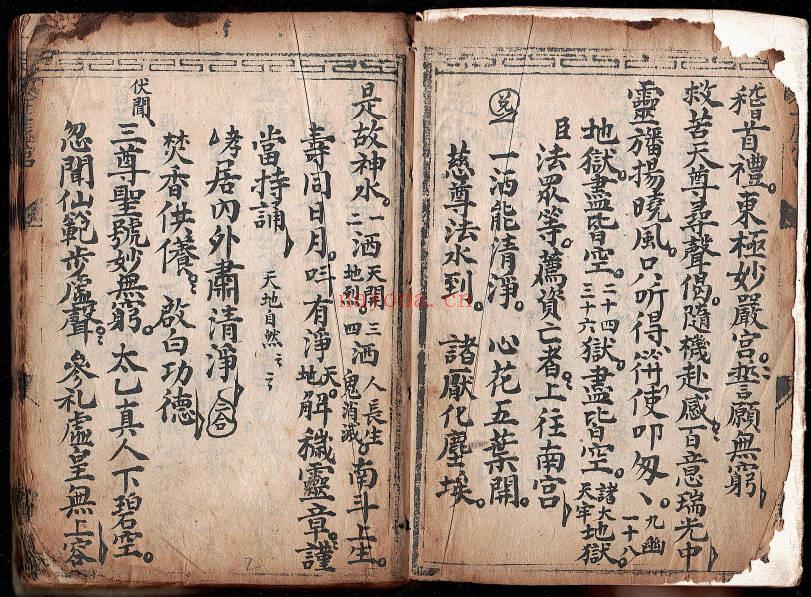 稽首禮。東極妙嚴宮。誓願無窮
救苦天尊尋聲偈。隨機赴感百意瑞光中
靈旛揚曉風。只听得符使叩匆、九幽一十八
地獄。盡皆空。二十四三十六獄。盡皆空。諸大地獄。天牢
臣法眾等。薦資亡者。上往南宮
兌一洒能清淨。心花五葉開。
慈尊法水到。諸厭化塵埃。
是故神水。一洒天開二地列。三四洒人長生鬼消滅。南斗上生。
壽同日月。吽有淨天地解穢靈章。謹
當持誦天地自然
峙居內外肅清淨合
焚香供養。啟白功德
伏聞
三尊聖號妙無窮。太乙真人下碧空。
忽聞仙範步虛聲。參礼虛皇無上容
nayona.cn